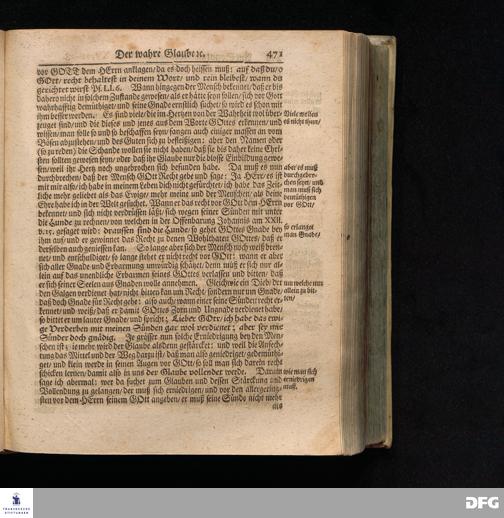 Der wahre Glaube ꝛc. 471
vor GOTT dem HErrn anklagen/ da es doch heissen muß: auf daß du/o
GOtt/ recht behaltest in deinem Wort/ und rein bleibest/ wann du
gerichtet wirst Ps. LI. 6. Wann hingegen der Mensch bekennet/ daß er bis
dahero nicht in solchem Zustande gewesen/ als er hätte seyn sollen/ sich vor Gott
wahrhafftig demüthiget/ und seine Gnade ernstlich suchet/ so wird es schon mit
ihm besser werden. Es sind viele/ die im Hertzen von der Wahrheit wol über-
zeuget sind/ und die dieses und jenes aus dem Worte GOttes erkennen/ und
wissen/ man solle so und so beschaffen seyn/ fangen auch einiger massen an vom
Bösen abzustehen/ und des Guten sich zu befleißigen: aber den Namen oder
(so zu reden) die Schande wollen sie nicht haben/ daß sie bis daher keine Chri-
sten sollten gewesen seyn/ oder daß ihr Glaube nur die blosse Einbildung gewe-
sen/ weil ihr Hertz noch ungebrochen sich befunden habe. Da muß es nun
durchbrechen/ daß der Mensch GOtt Recht gebe und sage: Ja HErr/ es ist
mit mir also/ ich habe in meinem Leben dich nicht gefürchtet/ ich habe das Zeit-
liche mehr geliebet als das Ewige/ mehr meine und der Menschen/ als deine
Ehre habe ich in der Welt gesuchet. Wann er das recht vor GOtt dem HErrn
bekennet/ und sich nicht verdrüssen läßt/ sich wegen seiner Sünden mit unter
die Hunde zu rechnen/ von welchen in der Offenbarung Johannis am XXII.
v. 15. gesaget wird: draussen sind die Hunde/ so gehet GOttes Gnade bey
ihm auf/ und er gewinnet das Recht zu denen Wohlthaten GOttes/ daß er
derselben auch geniessen kan. So lange aber sich der Mensch noch weiß bren-
net/ und entschuldiget/ so lange stehet er nicht recht vor GOtt: wann er aber
sich aller Gnade und Erbarmung unwürdig schätzet/ denn muß er sich nur al-
lein auf das unendliche Erbarmen seines GOttes verlassen und bitten/ daß
er sich seiner Seelen aus Gnaden wolle annehmen. Gleichwie ein Dieb/ der
den Galgen verdienet hat/ nicht bitten kan um Recht/ sondern nur um Gnade/
daß doch Gnade für Recht gehe: also auch/ wann einer seine Sünde recht er-
kennet/ und weiß/ daß er damit GOttes Zorn und Ungnade verdienet habe/
so bittet er um lauter Gnade/ und spricht: Lieber GOtt/ ich habe das ewi-
ge Verderben mit meinen Sünden gar wol verdienet; aber sey mir
Sünder doch gnädig. Je grösser nun solche Erniedrigung bey den Men-
schen ist; je mehr wird der Glaube alsdenn gestärcket: und weil die Anfech-
tung das Mittel und der Weg darzu ist/ daß man also geniedriget/ gedemüthi-
get/ und klein werde in seinen Augen vor GOtt/ so soll man sich darein recht
schicken lernen/ damit also in uns der Glaube vollendet werde. Darum
sage ich abermal: wer da suchet zum Glauben und dessen Stärckung und
Vollendung zu gelangen/ der muß sich erniedrigen/ und vor den allergering-
sten vor dem HErrn seinem GOtt angeben/ er muß seine Sünde nicht mehr
als
Viele wollen
es nicht thun/
aber es muß
durchgebro-
chen seyn/ und
man muß sich
demüthigen
vor Gott/
so erlanget
man Gnade/
um welche nun
allein zu bit-
ten/
wie man sich
erniedrigen
muß.
FRANCKESCHE
STIFTUNGEN
DFG